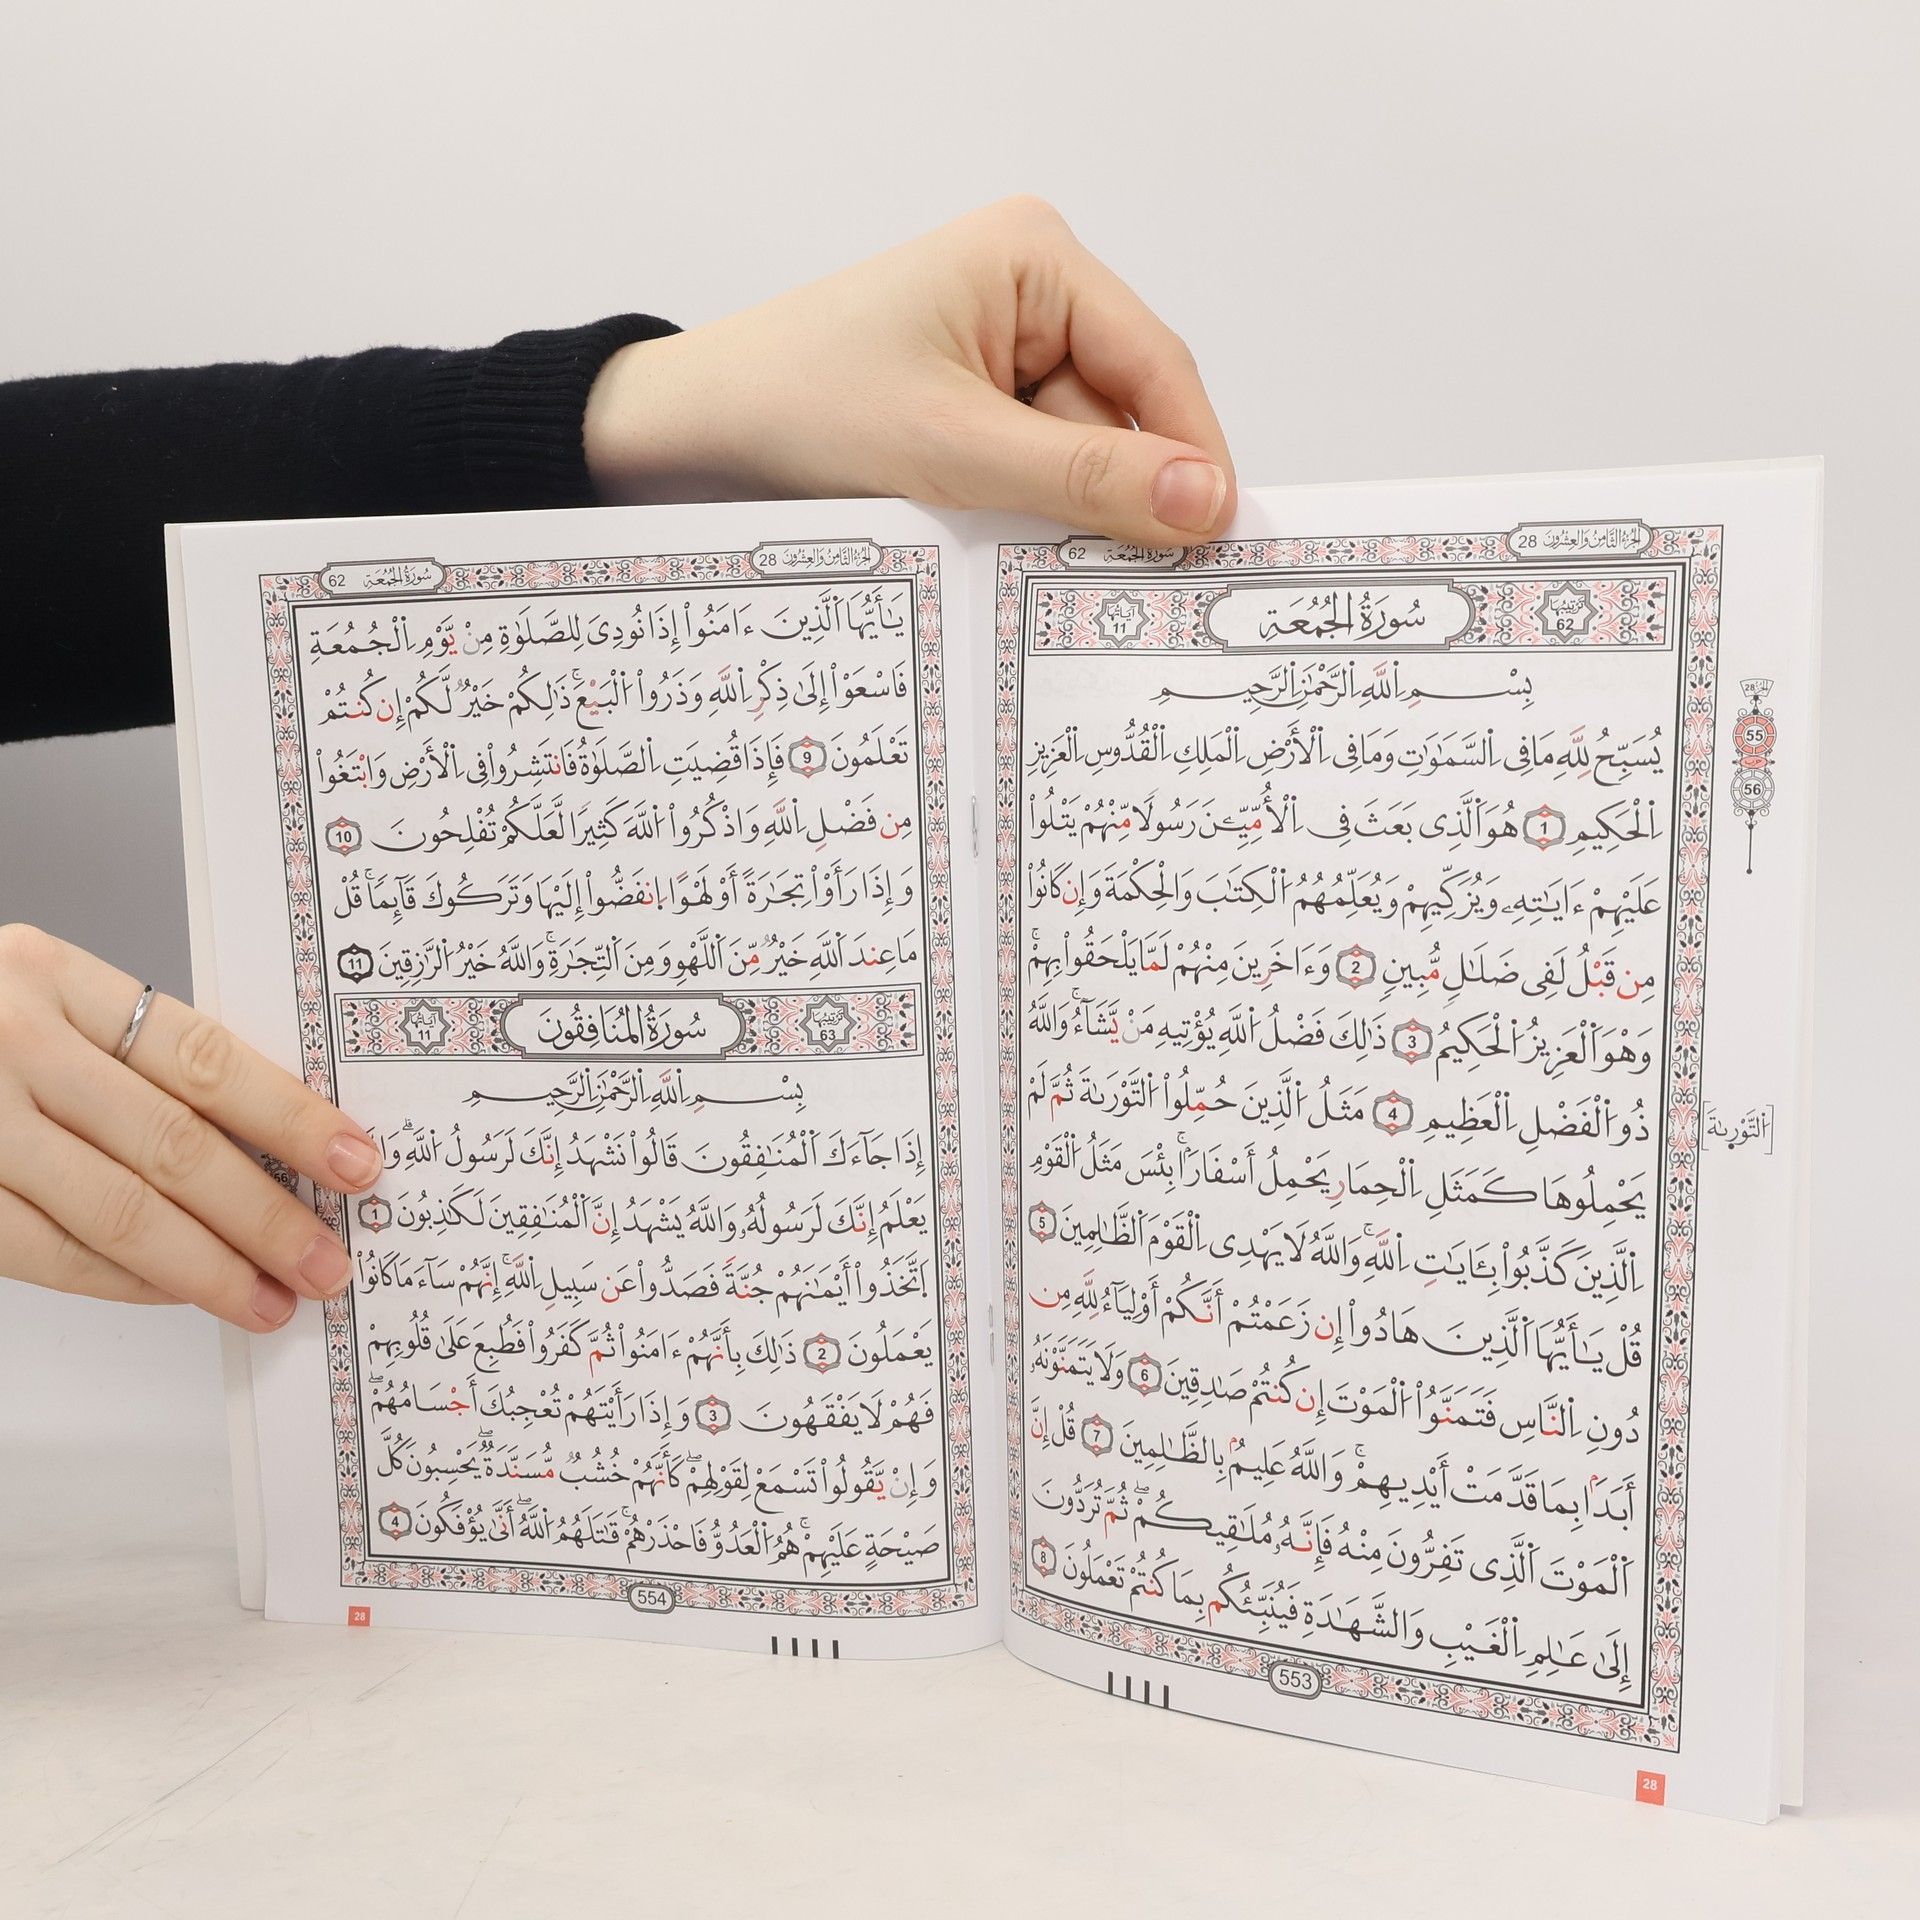 28 الجزء الثامن والعشرون
سورة الجمعة 62
ترتيبها 62
سُورَةُ الجُمُعَةِ
آياتها 11
بِسْمِ اِ۬للَّهِ اِ۬لرَّحْمَٰنِ اِ۬لرَّحِيمِ
يُسَبِّحُ لِلَّهِ مَا فِى اِ۬لسَّمَٰوَٰتِ وَمَا فِى اِ۬لْأَرْضِ اِ۬لْمَلِكِ اِ۬لْقُدُّوسِ اِ۬لْعَزِيزِ
اِ۬لْحَكِيمِ 1 هُوَ اَ۬لَّذِى بَعَثَ فِى اِ۬لْأُمِّيِّـۧنَ رَسُولًا مِّنْهُمْ يَتْلُوا۟
عَلَيْهِمْ ءَايَٰتِهِۦ وَيُزَكِّيهِمْ وَيُعَلِّمُهُمُ اُ۬لْكِتَٰبَ وَالْحِكْمَةَ وَإِن كَانُوا۟
مِن قَبْلُ لَفِى ضَلَٰلٍ مُّبِينٍ 2 وَءَاخَرِينَ مِنْهُمْ لَمَّا يَلْحَقُوا۟ بِهِمْۚ
وَهْوَ اَ۬لْعَزِيزُ اُ۬لْحَكِيمُ 3 ذَٰلِكَ فَضْلُ اُ۬للَّهِ يُؤْتِيهِ مَنْ يَّشَآءُۚ وَاللَّهُ
ذُو اُ۬لْفَضْلِ اِ۬لْعَظِيمِ 4 مَثَلُ اُ۬لَّذِينَ حُمِّلُوا۟ اُ۬لتَّوْر۪ىٰةَ ثُمَّ لَمْ
[اَ۬لتَّوْر۪ىٰةَ]
يَحْمِلُوهَا كَمَثَلِ اِ۬لْحِمَارِ يَحْمِلُ أَسْفَارًاۚ بِئْسَ مَثَلُ اُ۬لْقَوْمِ
اِ۬لَّذِينَ كَذَّبُوا۟ بِـَٔايَٰتِ اِ۬للَّهِۚ وَاللَّهُ لَا يَهْدِى اِ۬لْقَوْمَ اَ۬لظَّٰلِمِينَ 5
قُلْ يَٰٓأَيُّهَا اَ۬لَّذِينَ هَادُوٓا۟ إِن زَعَمْتُمْ أَنَّكُمْ أَوْلِيَآءُ لِلَّهِ مِن
دُونِ اِ۬لنَّاسِ فَتَمَنَّوُا۟ اُ۬لْمَوْتَ إِن كُنتُمْ صَٰدِقِينَ 6 وَلَا يَتَمَنَّوْنَهُۥٓ
أَبَدَۢا بِمَا قَدَّمَتْ أَيْدِيهِمْۚ وَاللَّهُ عَلِيمُۢ بِالظَّٰلِمِينَ 7 قُلْ إِنَّ
اَ۬لْمَوْتَ اَ۬لَّذِى تَفِرُّونَ مِنْهُ فَإِنَّهُۥ مُلَٰقِيكُمْۖ ثُمَّ تُرَدُّونَ
إِلَىٰ عَٰلِمِ اِ۬لْغَيْبِ وَالشَّهَٰدَةِ فَيُنَبِّئُكُم بِمَا كُنتُمْ تَعْمَلُونَ 8
553
28
28
55
حزب
56
28 الجزء الثامن والعشرون
سورة الجمعة 62
يَٰٓأَيُّهَا اَ۬لَّذِينَ ءَامَنُوٓا۟ إِذَا نُودِىَ لِلصَّلَوٰةِ مِنْ يَّوْمِ اِ۬لْجُمُعَةِ
فَاسْعَوْا۟ إِلَىٰ ذِكْرِ اِ۬للَّهِ وَذَرُوا۟ اُ۬لْبَيْعَۚ ذَٰلِكُمْ خَيْرٌ لَّكُمْ إِن كُنتُمْ
تَعْلَمُونَ 9 فَإِذَا قُضِيَتِ اِ۬لصَّلَوٰةُ فَانتَشِرُوا۟ فِى اِ۬لْأَرْضِ وَابْتَغُوا۟
مِن فَضْلِ اِ۬للَّهِ وَاذْكُرُوا۟ اُ۬للَّهَ كَثِيرًا لَّعَلَّكُمْ تُفْلِحُونَ 10
وَإِذَا رَأَوْا۟ تِجَٰرَةً أَوْ لَهْوًا اِ۪نفَضُّوٓا۟ إِلَيْهَا وَتَرَكُوكَ قَآئِمًاۚ قُلْ
مَا عِندَ اَ۬للَّهِ خَيْرٌ مِّنَ اَ۬للَّهْوِ وَمِنَ اَ۬لتِّجَٰرَةِۚ وَاللَّهُ خَيْرُ اُ۬لرَّٰزِقِينَ 11
ترتيبها 63
سُورَةُ المُنَافِقُونَ
آياتها 11
بِسْمِ اِ۬للَّهِ اِ۬لرَّحْمَٰنِ اِ۬لرَّحِيمِ
إِذَا جَآءَكَ اَ۬لْمُنَٰفِقُونَ قَالُوا۟ نَشْهَدُ إِنَّكَ لَرَسُولُ اُ۬للَّهِۗ
يَعْلَمُ إِنَّكَ لَرَسُولُهُۥ وَاللَّهُ يَشْهَدُ إِنَّ اَ۬لْمُنَٰفِقِينَ لَكَٰذِبُونَ 1
اَ۪تَّخَذُوٓا۟ أَيْمَٰنَهُمْ جُنَّةً فَصَدُّوا۟ عَن سَبِيلِ اِ۬للَّهِۚ إِنَّهُمْ سَآءَ مَا كَانُوا۟
يَعْمَلُونَ 2 ذَٰلِكَ بِأَنَّهُمْ ءَامَنُوا۟ ثُمَّ كَفَرُوا۟ فَطُبِعَ عَلَىٰ قُلُوبِهِمْ
فَهُمْ لَا يَفْقَهُونَ 3 وَإِذَا رَأَيْتَهُمْ تُعْجِبُكَ أَجْسَامُهُمْۖ
وَإِنْ يَّقُولُوا۟ تَسْمَعْ لِقَوْلِهِمْۖ كَأَنَّهُمْ خُشُبٌ مُّسَنَّدَةٌۖ يَحْسِبُونَ كُلَّ
صَيْحَةٍ عَلَيْهِمْۚ هُمُ اُ۬لْعَدُوُّ فَاحْذَرْهُمْۚ قَٰتَلَهُمُ اُ۬للَّهُۖ أَنَّىٰ يُؤْفَكُونَ 4
554
28